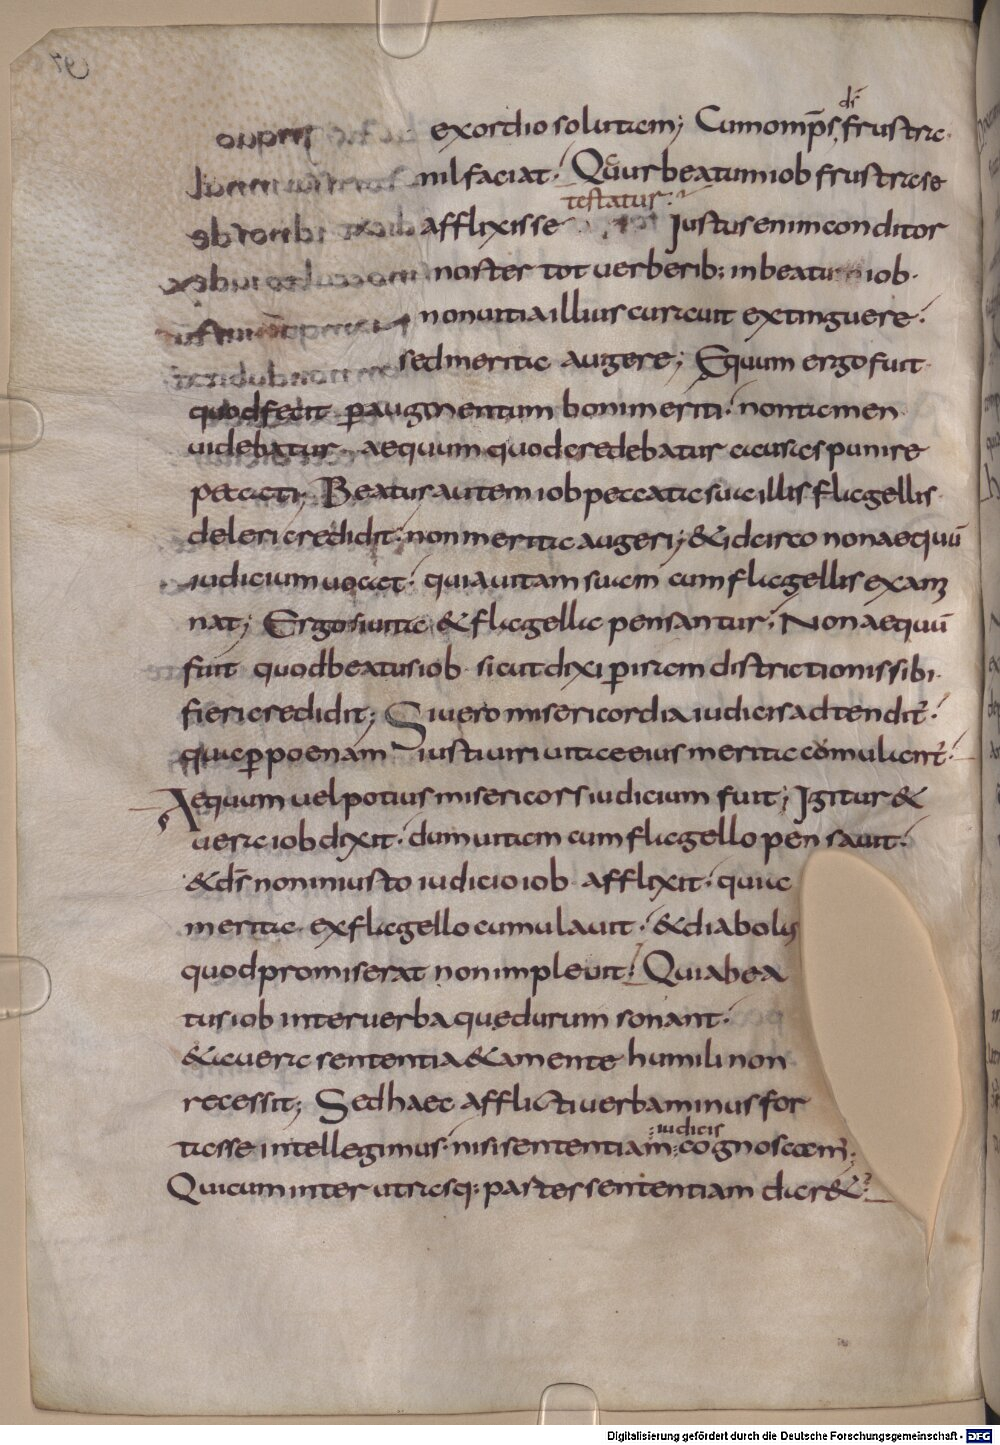 exordio solutam; Cum omp̄s ds̄ frustra
nil faciat· Quur beatum iob frustra se
afflixisse testatur· Iustus enim conditor
noster tot uerberib; in beatum iob·
non uitia illius curauit extinguere·
sed merita augere; Equum ergo fuit
quod fecit p̱ augmentum boni meriti· non tamen
uidebatur· aequum quod credebatur a cuius punire
peccati; Beatus autem iob peccata sua illis flagellis
deleri credidit· non merita augeri; & idcirco non aequū
iudicium uocat· quia uitam suam cum flagellis exami
nat; Ergo si uita & flagella pensantur· Non aequū
fuit quod beatus iob sicut dixi p̱ iram districtionis sibi
fieri credidit; Si uero misericordia iudicis adtendit̄·
quia p̱ poenam iusti uiri uitae eius merita comulant̄·
Aequum uel potius misericors iudicium fuit; Igitur &
uera iob dixit· dum uitam cum flagello pensauit·
& ds̄ non iniusto iudicio iob afflixit· qui ac
merita ex flagello cumulauit· & diabolus
quod promiserat non impleuit· Quia bea
tus iob inter uerba quę durum sonant·
& a uera sententia & a mente humili non
recessit; Sed haec afflicti uerba minus for
tasse intellegimus· nisi sententiam iudicis cognoscam̄;
Qui cum inter utrasq; partes sententiam dar&·
Digitalisierung gefördert durch die Deutsche Forschungsgemeinschaft - DFG